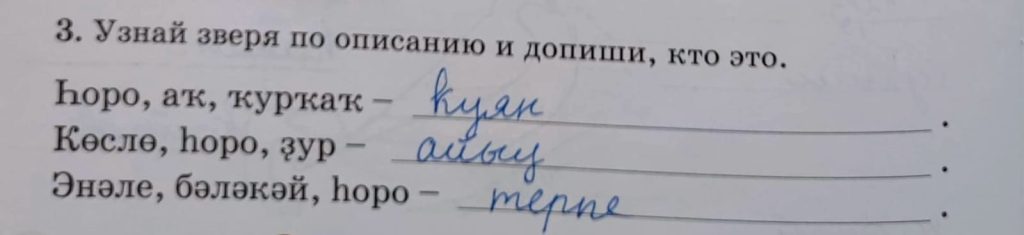 3. Узнай зверя по описанию и допиши, кто это.
Һоро, аҡ, ҡурҡаҡ – куян.
Көслө, һоро, ҙур – айыу.
Энәле, бәләкәй, һоро – терпе.